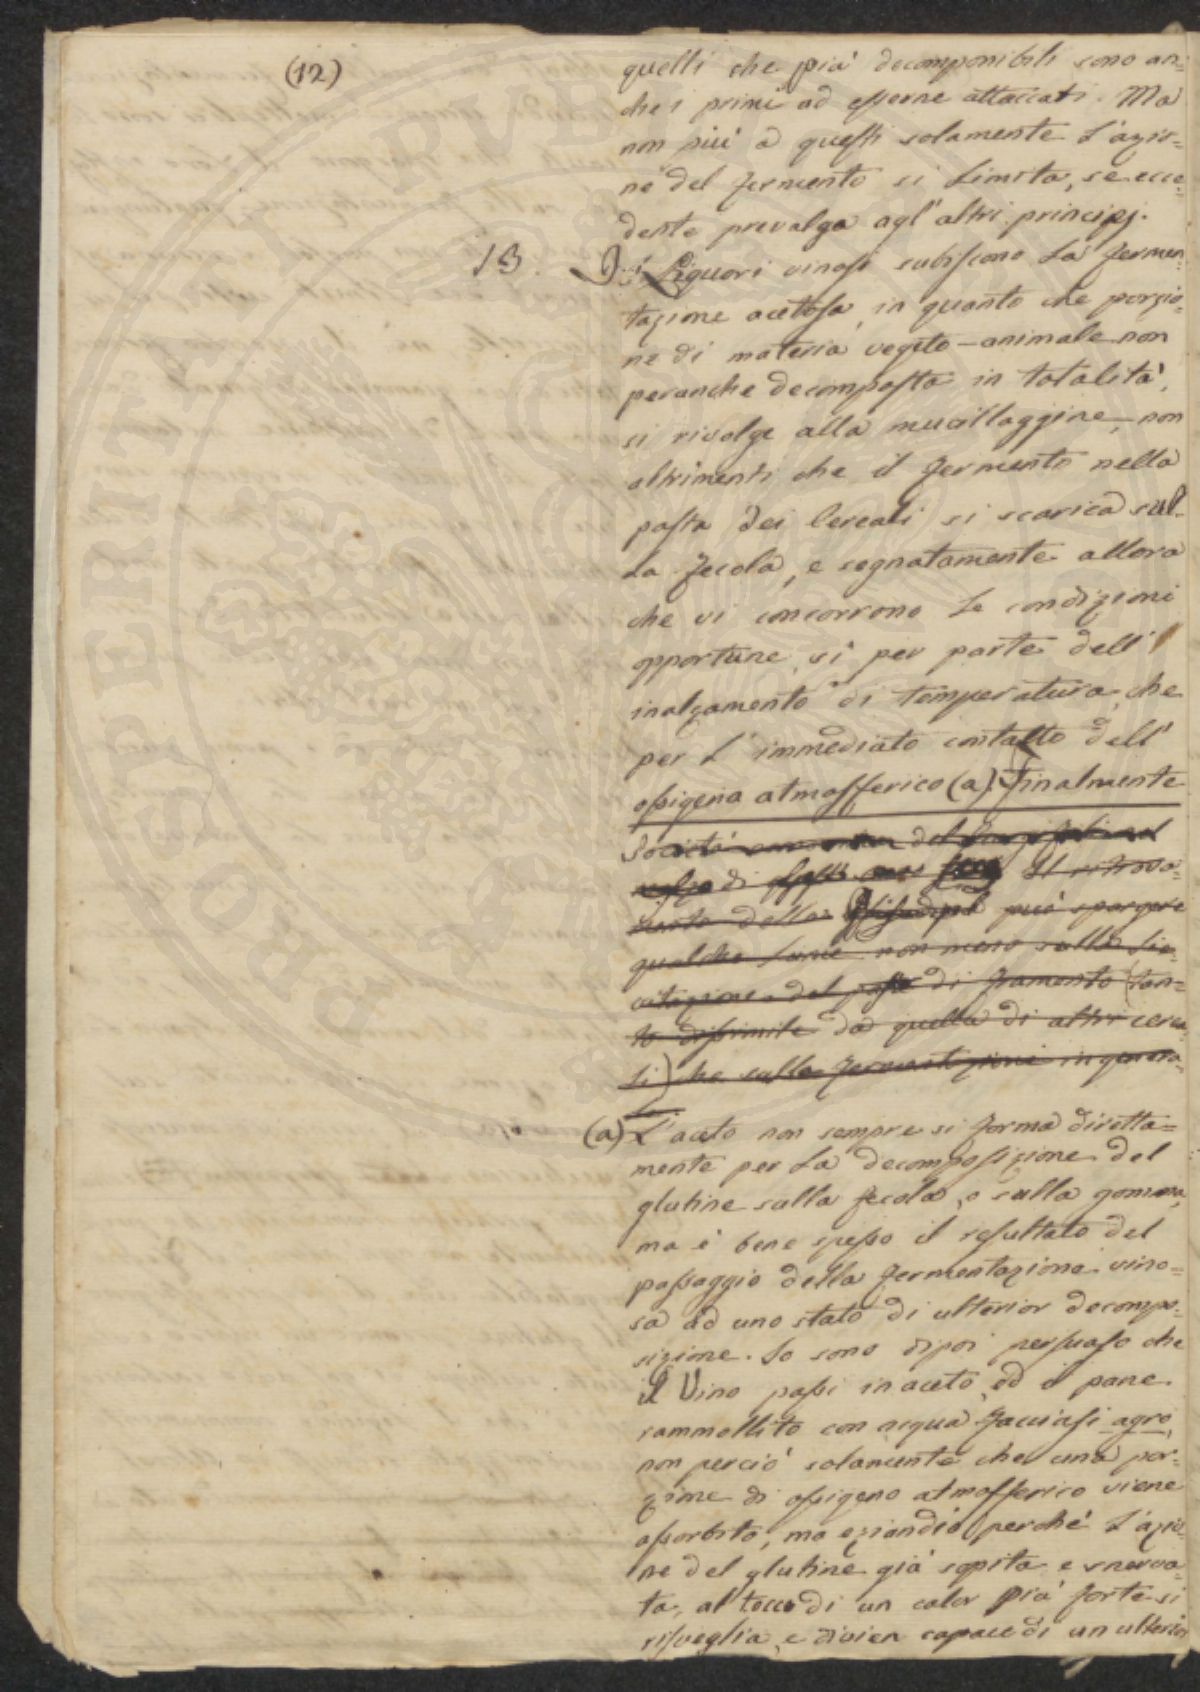 (12)
quelli che più decomponibili sono an=
che i primi ad esserne attaccati. Ma
non più a questi solamente l'azio=
ne del fermento si limita, se ecce=
dente prevalga agl'altri principj.
13. I Liquori vinosi subiscono la fermen=
tazione acetosa, in quanto che porzio=
ne di materia vegeto-animale non
peranche decomposta in totalità,
si rivolge alla mucillaggine, non
altrimenti che il fermento nella
pasta dei Cereali si scarica sul=
la fecola, e segnatamente allora
che vi concorrono le condizioni
opportune, sì per parte dell'
inalzamento di temperatura, che
per l'immediato contatto dell'
ossigeno atmosferico (a). Finalmente
Società del
di Il ritrova=
mento della può spargere
qualche lume non meno sulla lie=
vitazione del pane di framento (tan=
to dissimile da quella di altri cerea
li) che sulla fermentazione in genera=
(a) L'aceto non sempre si forma diretta=
mente per la decomposizione del
glutine sulla fecola, o sulla gomma,
ma è bene spesso il resultato del
passaggio della fermentazione vino=
sa ad uno stato di ulterior decompo=
sizione. Io sono dipoi persuaso che
il Vino passi in aceto, ed il pane
rammollito con acqua facciasi agro,
non perciò solamente che una por=
zione di ossigeno atmosferico viene
assorbito, ma eziandio perché l'azio=
ne del glutine già sopita e snerva=
ta, al tocco di un calor più forte si
risveglia, e divien capace di un ulterior